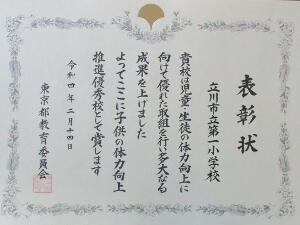 表彰状
立川市立第一小学校
貴校は児童・生徒の体力向上に
向けて優れた取組を行い多大なる
成果を上げました
よってここに子供の体力向上
推進優秀校として賞します
令和四年二月十四日
東京都教育委員会